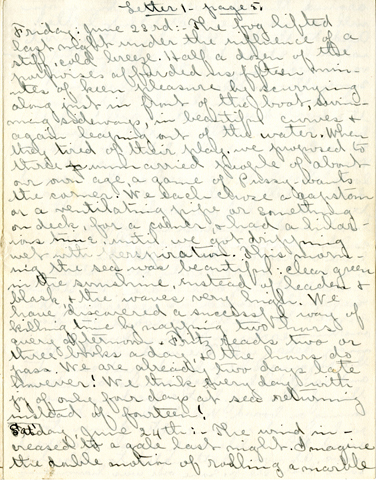 Letter 1 - page 5.
Friday, June 23rd: - The fog lifted
last night under the influence of a
stiff, cold breeze. Half a dozen of the
porpoises afforded us fifteen min-
utes of keen pleasure by scurrying
along just in front of the boat, swim-
ming sideways, in beautiful curves &
again leaping out of the water. When
they tired of their play, we proposed to
three unmarried people of about
our own age a game of Pussy-wants
the corner. We each chose a capstan
or a ventilating pipe or something
on deck, for a corner, & had a hilar-
ious time, until we got dripping
wet with perspiration. This morn-
ing the sea was beautiful: clear green
in the sunshine, instead of leaden &
black, & the waves very high. We
have discovered a successful way of
killing time by napping two hours
every afternoon. Fritz reads two or
three books a day, & the hours do
pass. We are already two days late
however! We think every day with
joy of only four days at sea returning
instead of fourteen!
Sat'day, June 24th: - The wind in-
creased to a gale last night. Imagine
the double motion of rolling a marble